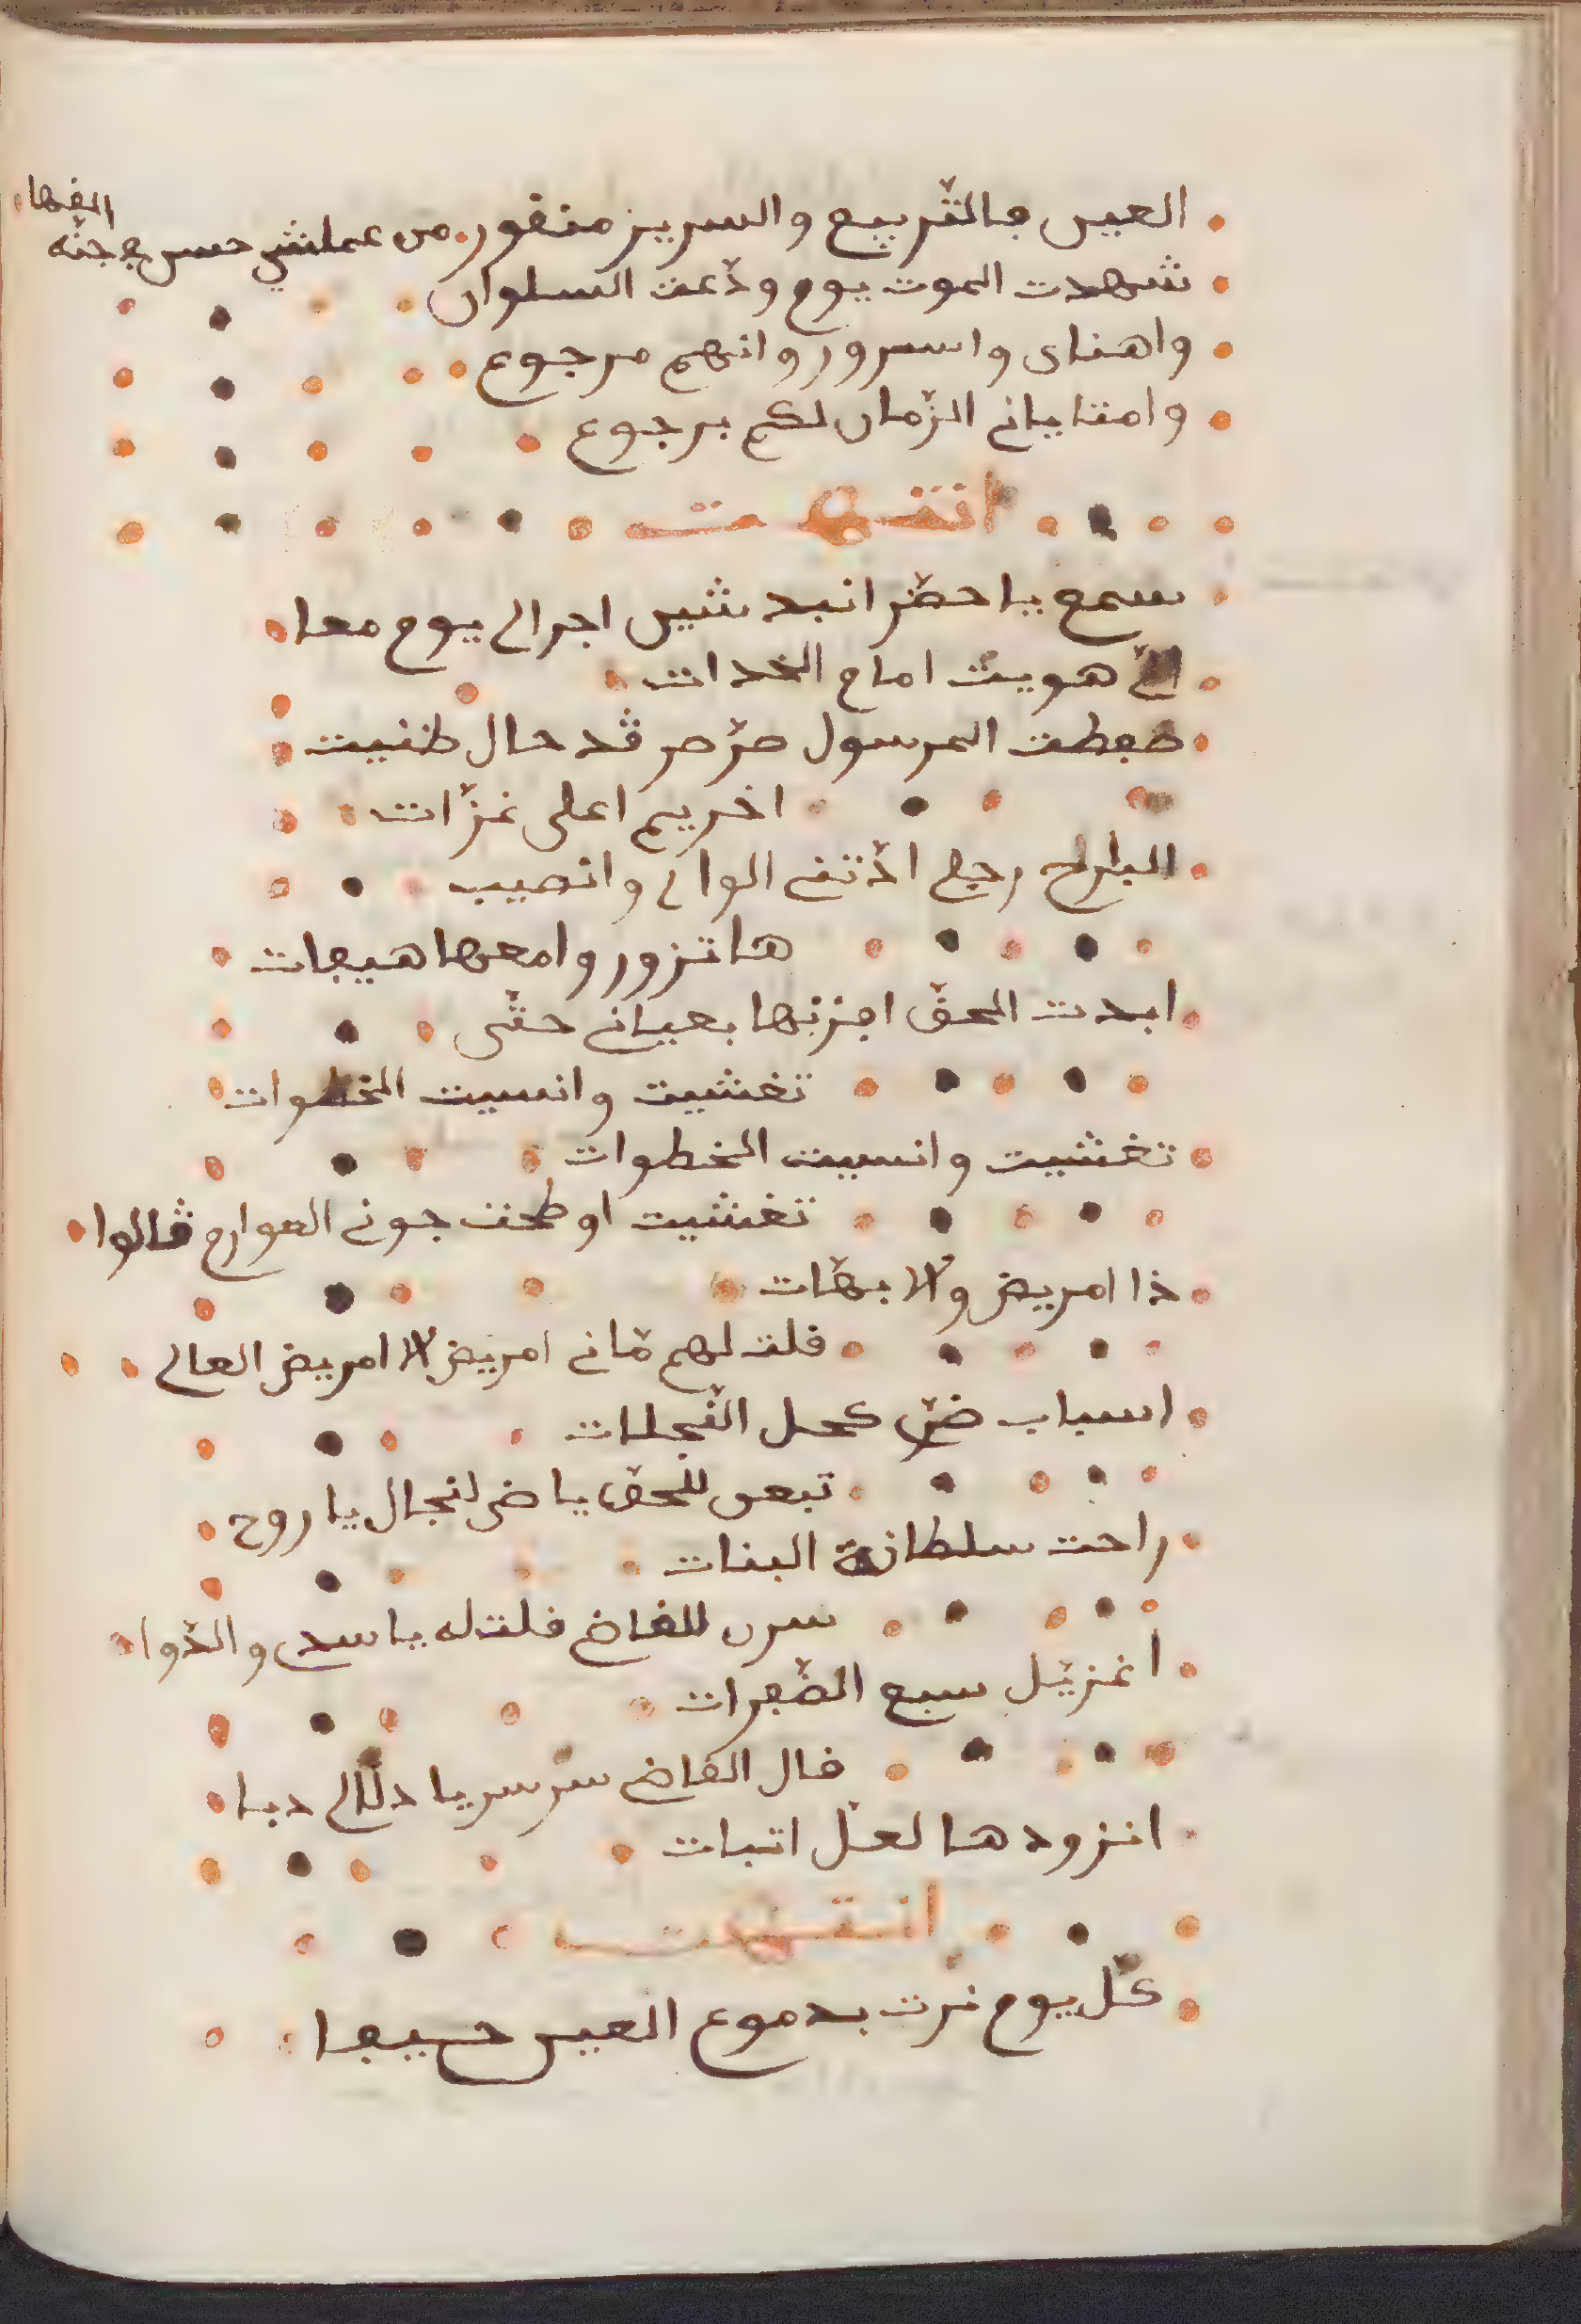 العين بالتربيع والسرير منقور. من عملشي حسن بجنه القها
شهدت الموت يوم ودّعت السلوان
واهناى واسرور وانهم مرجوع
وامتا يانى الزّمان لكم برجوع
انتهت
سمع يا حضّر انبد شين اجرالي يوم معا
هويت امام الخدات
طبطت المرسول صرّصر ڨد حال ظنيت
اخريم اعلى غزّات
البارح رجع ادّتنى الوالي وانصيب
هاتزوروا معها هيهات
ابدت الحقّ اجزتها بعيانى حتّى
تغشيت وانسيت الخطوات
تغشيت وانسيت الخطوات
تغشيت او طحت جونى العوارم ڨالوا
ذا امريض ولا بهّات
قلت لهم مّانى امريض لا امريض العالي
اسباب ضيّ كحل النّجلات
تبعو للحقّ يا ضى لنجال يا روح
راحت سلطانة البنات
سرت للقاضى قلت له ياسدي والدّوا
اغزيّل سبع الضّبرات
قال القاضى سرّسر يا دلّالي دبا
انزودها لعلّ اتبات
انتهت
كلّ يوم نرت بدموع العين حسيبا